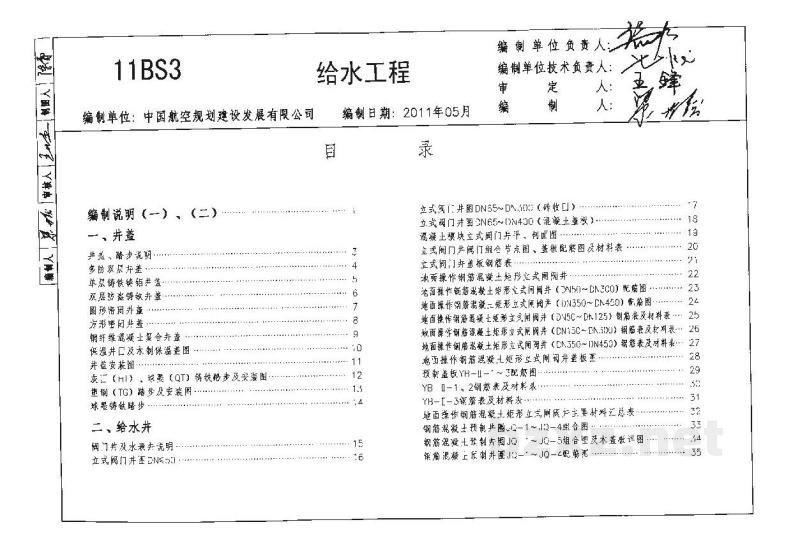 11BS3
给水工程
编制单位: 中国航空规划建设发展有限公司
编制日期: 2011年05月
编制单位负责人:
编制单位技术负责人:
审定人:
编制人:
制图人
审核人
编制人
目录
编制说明(一)、(二)
一、井盖
井盖、踏步说明 3
多防双层井盖 4
单层铸铁铸铝井盖 5
双层防盗铸铁井盖 6
圆形密闭井盖 7
方形密闭井盖 8
钢纤维混凝土复合井盖 9
保温井口及木制保温盖图 10
井盖安装图 11
灰口(HT)、球墨(QT)铸铁踏步及安装图 12
塑钢(TG)踏步及安装图 13
球墨铸铁踏步 14
二、给水井
阀门井及水表井说明 15
立式阀门井图DN≤50 16
立式阀门井图DN65~DN300(砖收口) 17
立式阀门井图DN65~DN400(混凝土盖板) 18
混凝土模块立式阀门井平、剖面图 19
立式闸门井阀门组合节点图、盖板配筋图及材料表 20
立式闸门井盖板钢筋表 21
地面操作钢筋混凝土矩形立式闸阀井 22
地面操作钢筋混凝土矩形立式闸阀井(DN50~DN300)配筋图 23
地面操作钢筋混凝土矩形立式闸阀井(DN350~DN450)配筋图 24
地面操作钢筋混凝土矩形立式闸阀井(DN50~DN125)钢筋表及材料表 25
地面操作钢筋混凝土矩形立式闸阀井(DN150~DN300)钢筋表及材料表 26
地面操作钢筋混凝土矩形立式闸阀井(DN350~DN450)钢筋表及材料表 27
地面操作钢筋混凝土矩形立式闸阀井盖板图 28
预制盖板YB-Ⅱ-1~3配筋图 29
YB-Ⅱ-1、2钢筋表及材料表 30
YB-Ⅱ-3钢筋表及材料表 31
地面操作钢筋混凝土矩形立式闸阀井主要材料汇总表 32
钢筋混凝土预制井圈JQ-1~JQ-4组合图 33
钢筋混凝土预制井圈JQ-1~JQ-5组合图及木盖板详图 34
钢筋混凝土预制井圈JQ-1~JQ-4配筋图 35